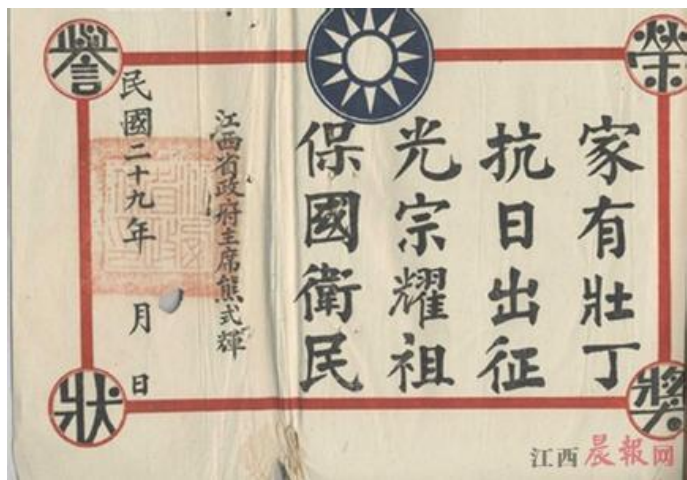 榮譽獎狀
家有壯丁
抗日出征
光宗耀祖
保國衛民
江西省政府主席熊式輝
民國二十九年 月 日
江西晨報网